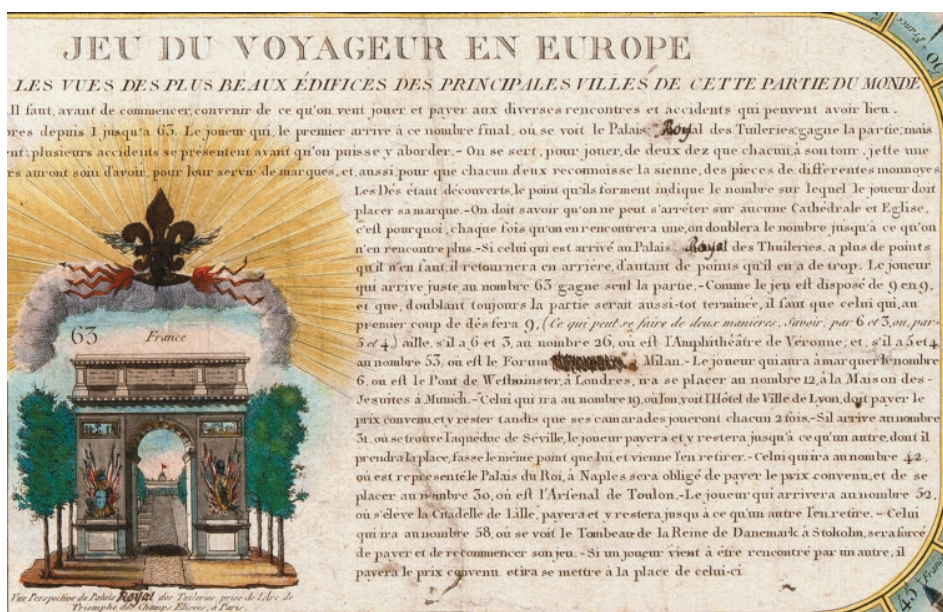 JEU DU VOYAGEUR EN EUROPE
LES VUES DES PLUS BEAUX ÉDIFICES DES PRINCIPALES VILLES DE CETTE PARTIE DU MONDE
Il faut, avant de commencer, convenir de ce qu'on veut jouer et payer aux diverses rencontres et accidents qui peuvent avoir lieu.
res depuis 1 jusqu'a 63. Le joueur qui, le premier arrive à ce nombre final, où se voit le Palais Royal des Tuileries, gagne la partie; mais
nt: plusieurs accidents se présentent avant qu'on puisse y aborder.- On se sert, pour jouer, de deux dez que chacun, à son tour, jette une
rs auront soin d'avoir, pour leur servir de marques, et, aussi, pour que chacun d'eux reconnoisse la sienne, des pieces de differentes monnoyes
Les Dés étant découverts, le point qu'ils forment indique le nombre sur lequel le joueur doit
placer sa marque.-On doit savoir qu'on ne peut s'arréter sur aucune Cathédrale et Eglise,
c'est pourquoi, chaque fois qu'on en rencontrera une, on doublera le nombre jusqu'à ce qu'on
n'en rencontre plus.-Si celui qui est arrivé au Palais Royal des Thuileries, a plus de points
qu'il n'en faut, il retournera en arrière, d'autant de points qu'il en a de trop. Le joueur
qui arrive juste au nombre 63 gagne seul la partie.-Comme le jeu est disposé de 9 en 9,
et que, doublant toujours la partie serait aussi-tot terminée, il faut que celui qui, au
premier coup de dés fera 9, (Ce qui peut se faire de deux manières, Savoir, par 6 et 3, ou, par
5 et 4,) aille, s'il a 6 et 3, au nombre 26, où est l'Amphithéatre de Véronne; et, s'il a 5 et 4,
au nombre 53, où est le Forum Milan.-Le joueur qui aura à marquer le nombre
6, où est le Pont de Westminster, à Londres, ira se placer au nombre 12, à la Maison des-
Jesuites à Munich.-Celui qui ira au nombre 19, où l'on voit l'Hôtel de Ville de Lyon, doit payer le
prix convenu, et y rester tandis que ses camarades joueront chacun 2 fois.-S'il arrive au nombre
31, où se trouve l'aquéduc de Séville, le joueur payera et y restera jusqu'à ce qu'un autre, dont il
prendra la place, fasse le même point que lui, et vienne l'en retirer.-Celui qui ira au nombre 42,
où est représenté le Palais du Roi, à Naples sera obligé de payer le prix convenu, et de se
placer au nombre 30, où est l'Arsenal de Toulon.-Le joueur qui arrivera au nombre 52,
où s'élève la Citadelle de Lille, payera et y restera jusqu'à ce qu'un autre l'en retire.-Celui
qui ira au nombre 58, où se voit le Tombeau de la Reine de Danemark à Stokolm, sera forcé
de payer et de recommencer son jeu.-Si un joueur vient à être rencontré par un autre, il
payera le prix convenu et ira se mettre à la place de celui-ci
63 France
Vue Perspective du Palais Royal des Tuileries, prise de l'Arc de
Triomphe des Champs Elisées, à Paris.
France
60
France
45